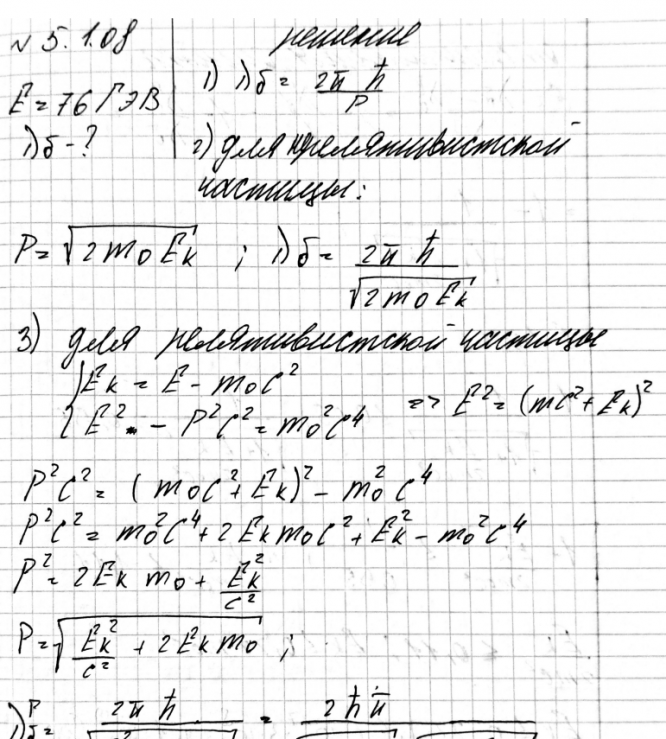 N 5.1.08
решение
E = 76 ГэВ
λб - ?
1) λб = 2π ħ / P
2) для нерелятивистской
частицы:
P = √(2 m0 Eк) ; λб = 2π ħ / √(2 m0 Eк)
3) для релятивистской частицы
{ Eк = E - m0c²
{ E² - P²c² = m0²c⁴ => E² = (mc² + Eк)²
P²c² = (m0c² + Eк)² - m0²c⁴
P²c² = m0²c⁴ + 2Eк m0c² + Eк² - m0²c⁴
P² = 2Eк m0 + Eк²/c²
P = √(Eк²/c² + 2Eк m0) ;
λбᴾ = 2π ħ / = 2 ħ π /